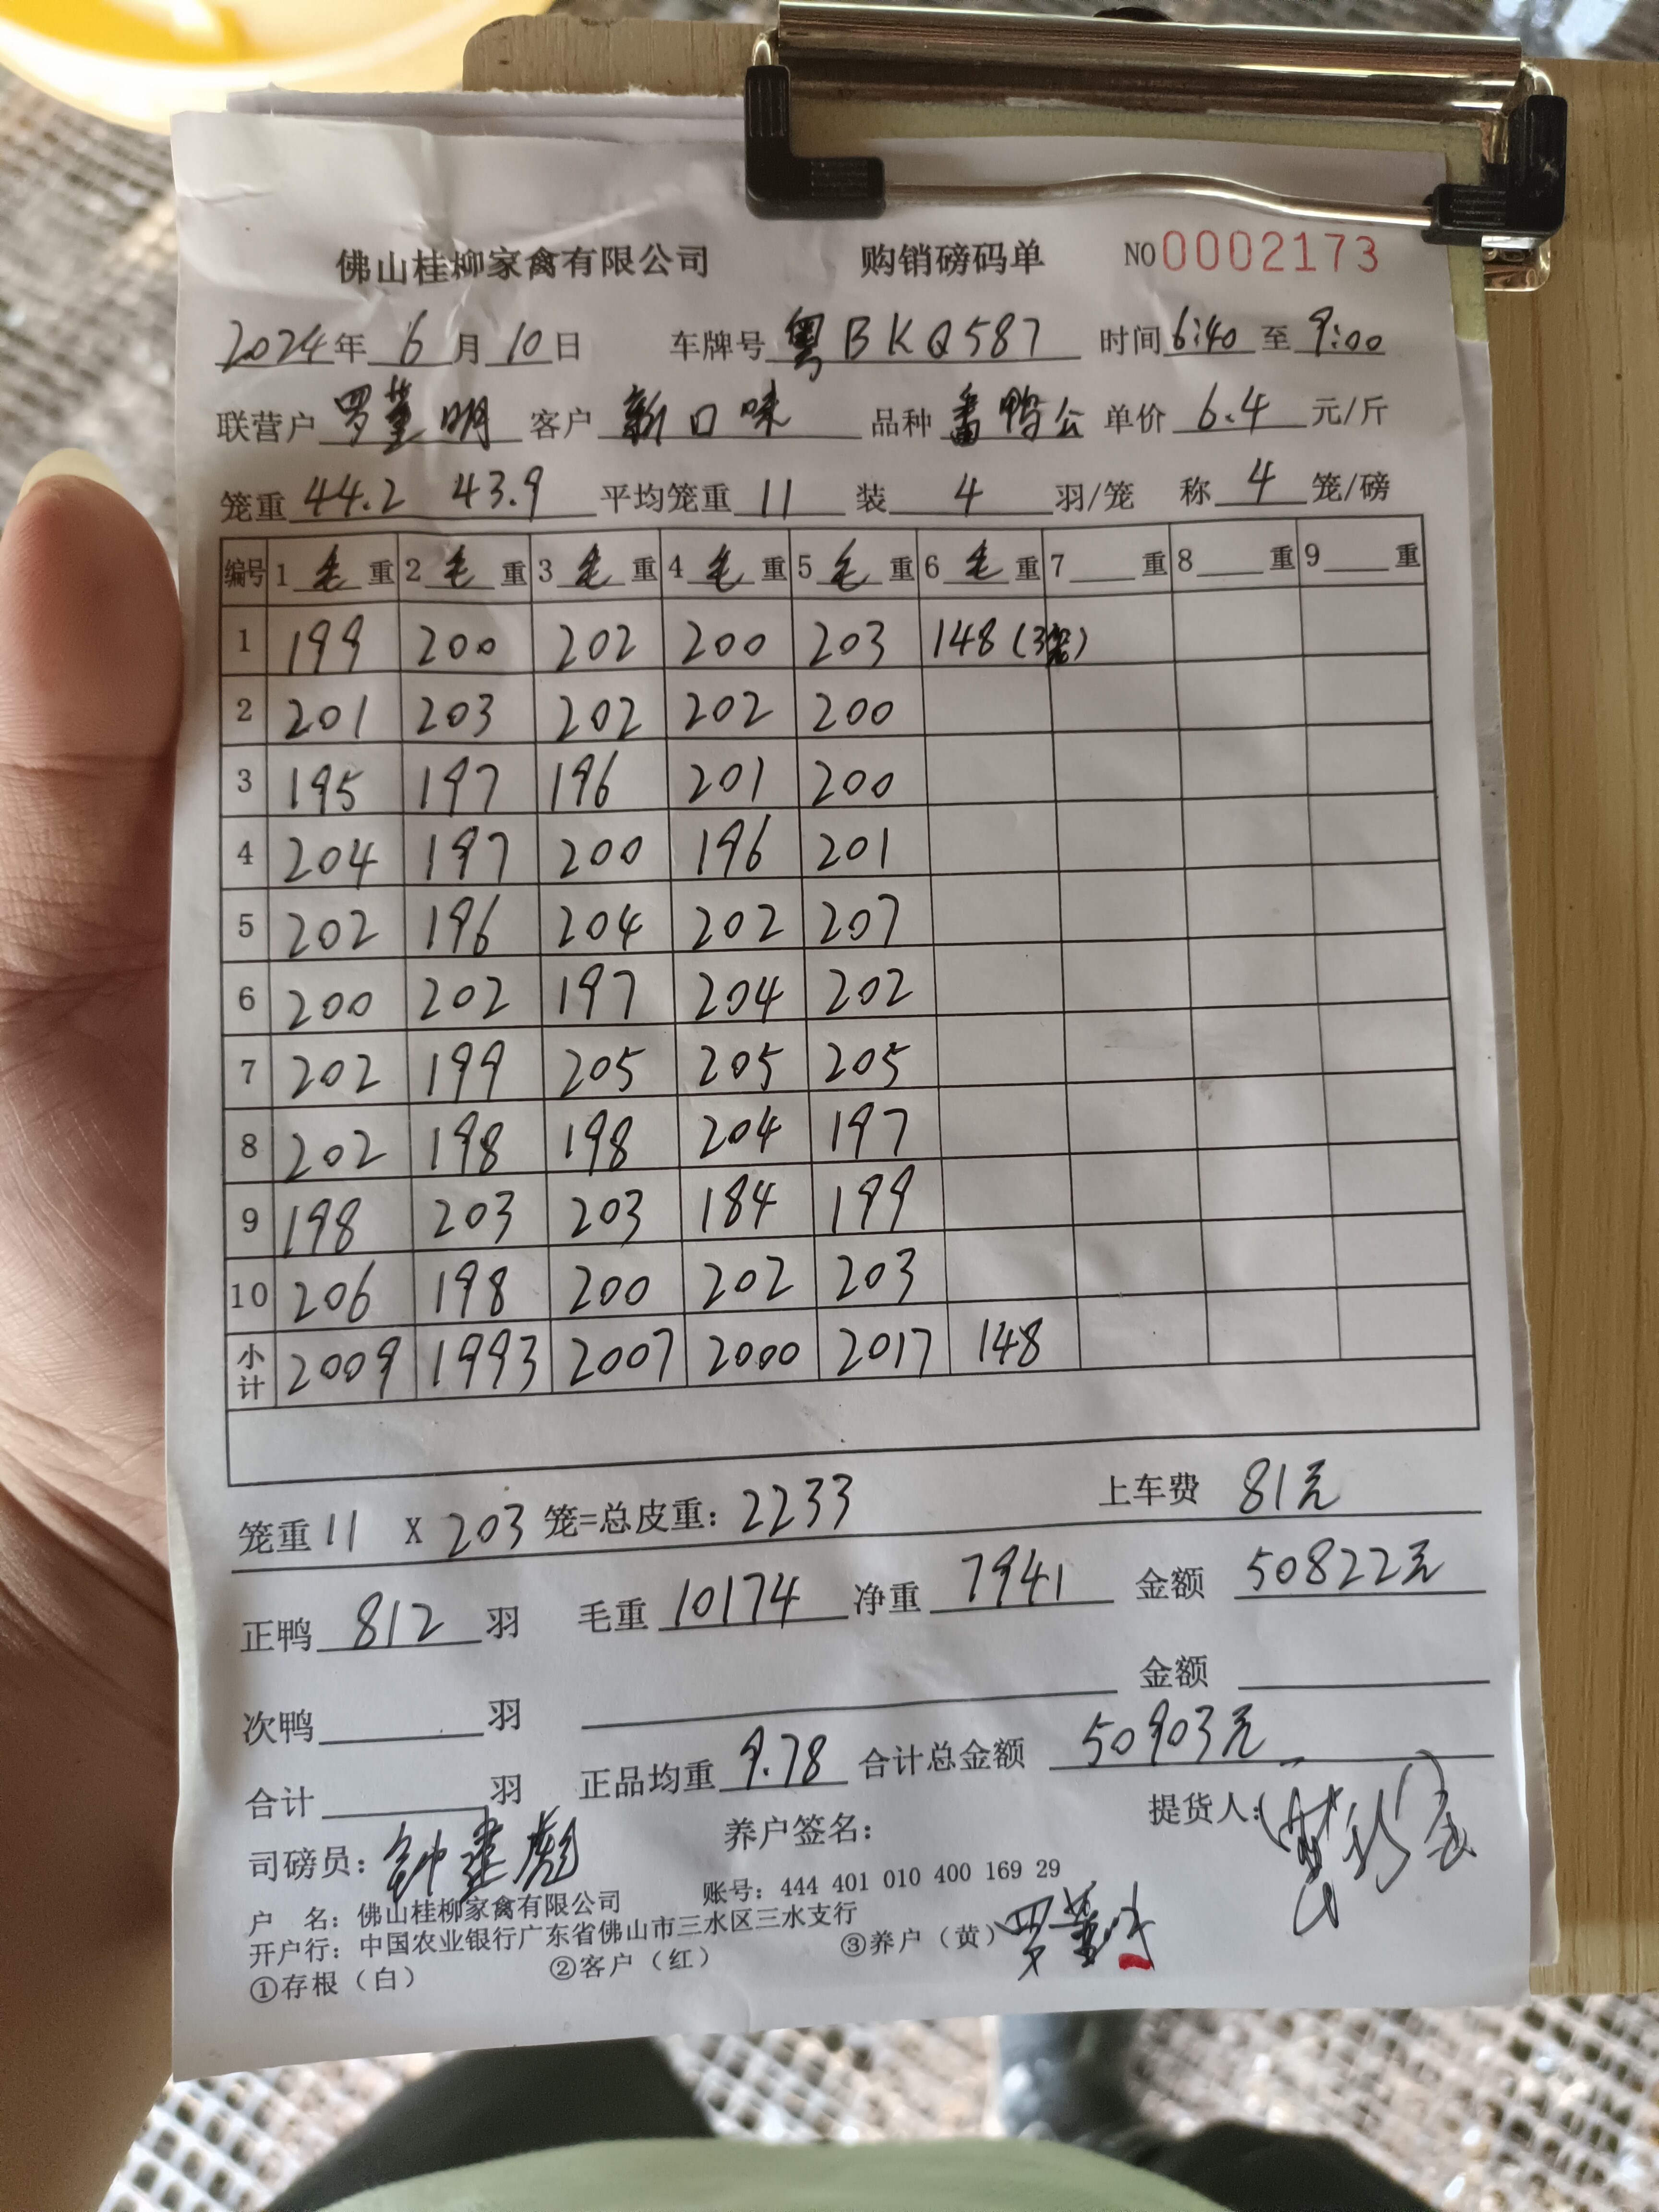 佛山桂柳家禽有限公司 购销磅码单 NO 0002173
2024年 6月 10日 车牌号 粤BKQ587 时间 6:40 至 9:00
联营户 罗堇明 客户 新口味 品种 番鸭公 单价 6.4 元/斤
笼重 44.2 43.9 平均笼重 11 装 4 羽/笼 称 4 笼/磅
编号 1毛重 2毛重 3毛重 4毛重 5毛重 6毛重 7重 8重 9重
1 199 200 202 200 203 148 (3笼)
2 201 203 202 202 200
3 195 197 196 201 200
4 204 197 200 196 201
5 202 196 204 202 207
6 200 202 197 204 202
7 202 199 205 205 205
8 202 198 198 204 197
9 198 203 203 184 199
10 206 198 200 202 203
小计 2009 1993 2007 2000 2017 148
笼重 11 X 203 笼=总皮重: 2233 上车费 81元
正鸭 812 羽 毛重 10174 净重 7941 金额 50822元
次鸭 羽 金额
合计 羽 正品均重 9.78 合计总金额 50903元
司磅员: 钟建彪 养户签名: 提货人:
户 名: 佛山桂柳家禽有限公司 账号: 444 401 010 400 169 29
开户行: 中国农业银行广东省佛山市三水区三水支行
①存根（白） ②客户（红） ③养户（黄）